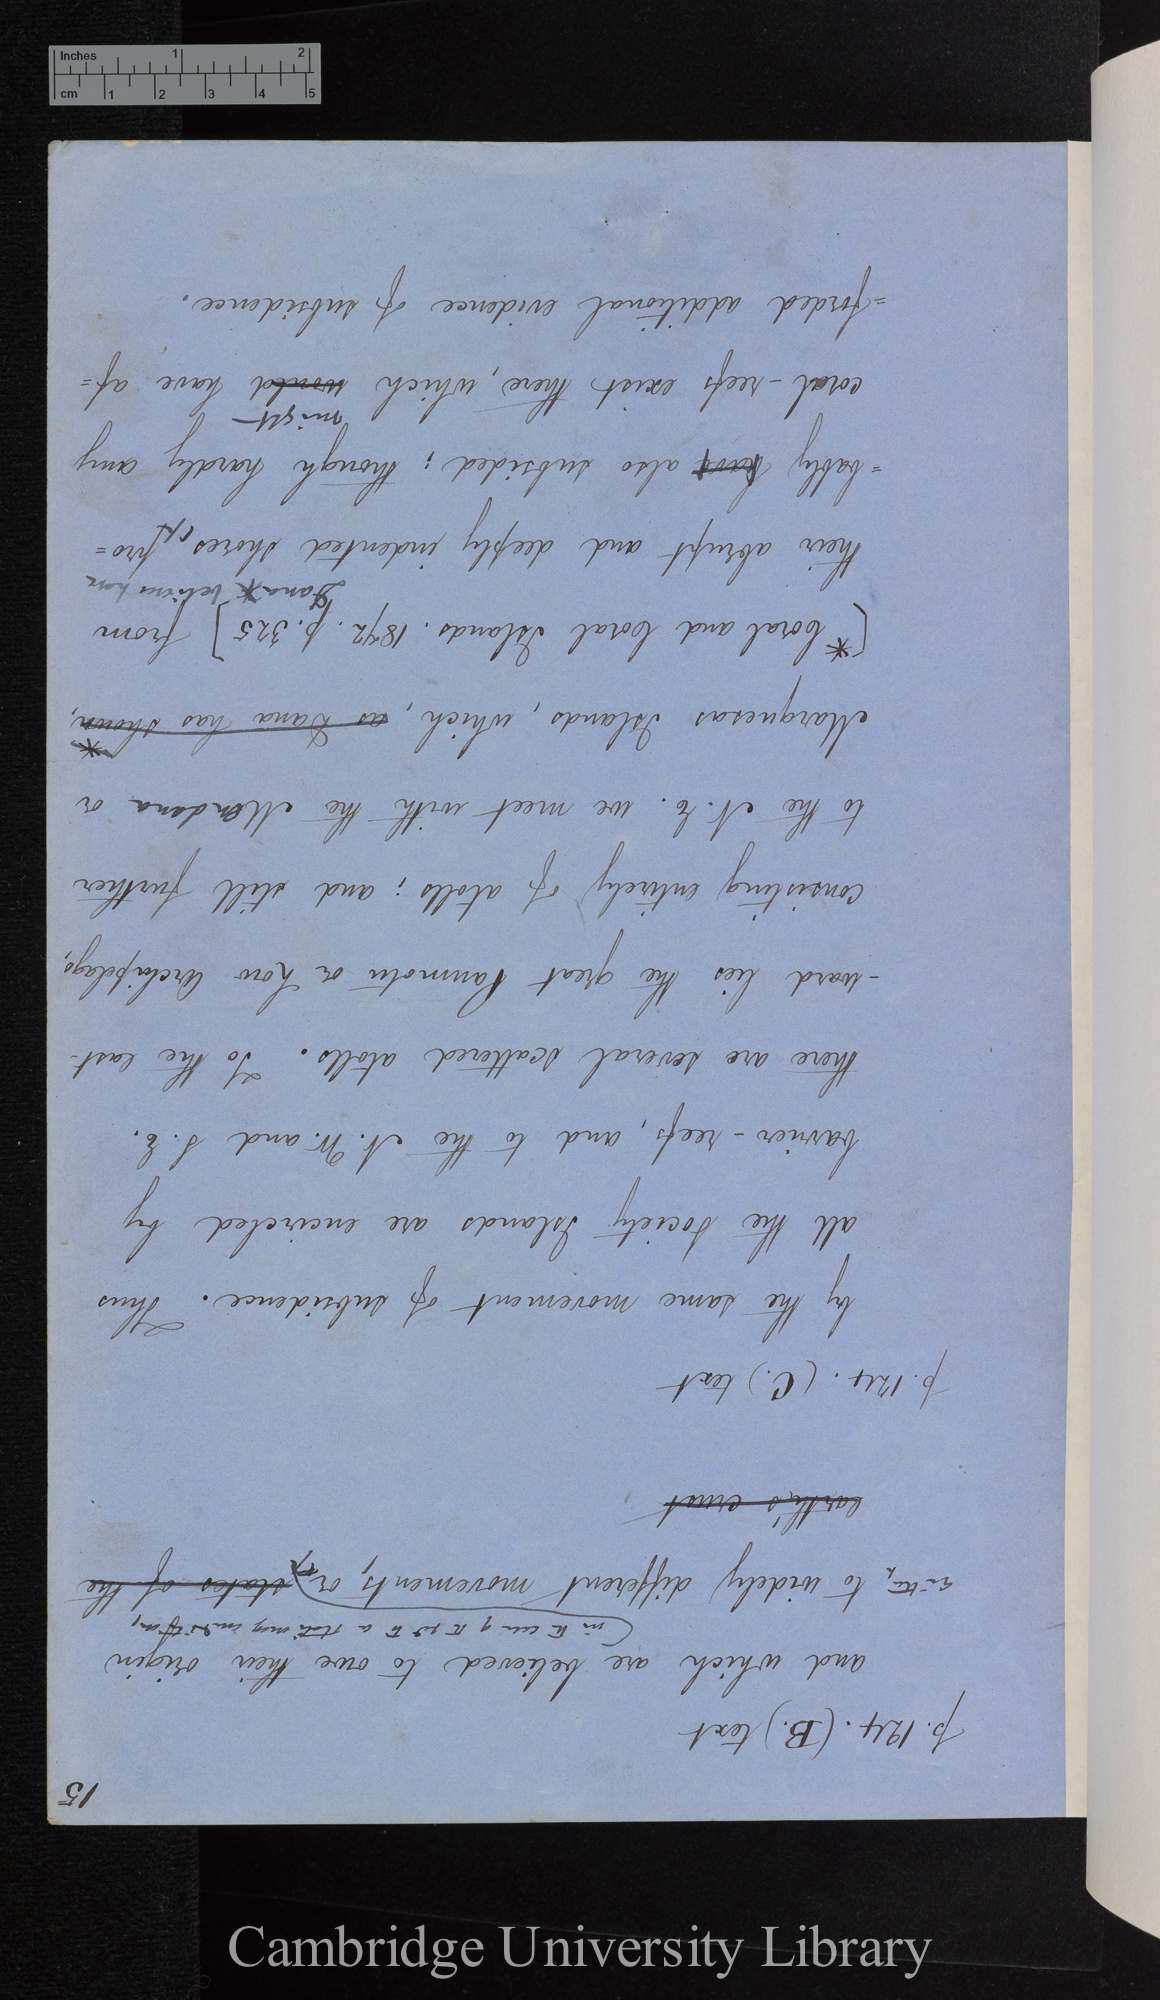 15
p. 124. (B.) text
and which are believed to owe their origin
(in the case of the
to a stationary condition,
either to widely different movements, or states of the
earth's crust
p. 124. (C.) text
by the same movement of subsidence. Thus
all the Society Islands are encircled by
barrier-reefs, and to the N.W. and S.E.
there are several scattered atolls. To the east-
-ward lies the great Paumotu or Low Archipelago,
consisting entirely of atolls; and still further
to the N.E. we meet with the Mendana or
Marquesas Islands, which, as Dana has shown,
*
[* Coral and Coral Islands. 1872. p. 325] from
Dana* believes
their abrupt and deeply indented shores, pro=
=bably have also subsided; though hardly any
might
coral-reefs exist there, which would have af=
=forded additional evidence of subsidence.
Inches 1 2
cm 1 2 3 4 5
Cambridge University Library